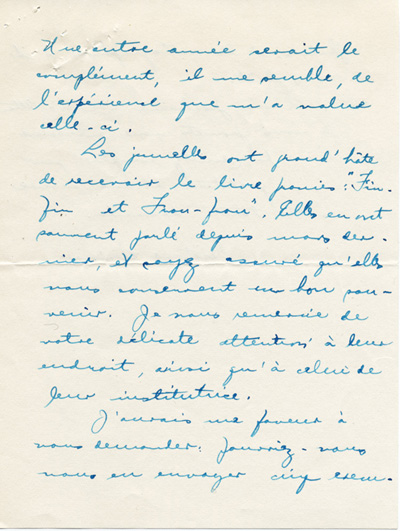 Une autre année serait le
complément, il me semble, de
l'expérience que m'a value
celle-ci.
Les jumelles ont grand'hâte
de recevoir le livre promis: "Fin-
fin et Frou-frou". Elles en ont
souvent parlé depuis mars der-
nier, et soyez assuré qu'elles
vous conservent un bon sou-
venir. Je vous remercie de
votre délicate attention à leur
endroit, ainsi qu'à celui de
leur institutrice.
J'aurais une faveur à
vous demander: Pourriez-vous
nous en envoyer cinq exem-